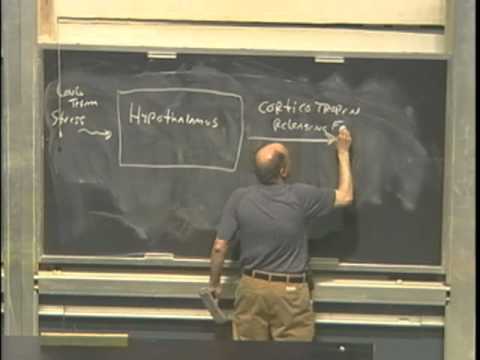 Long
Term
Stress
Hypothalamus
Corticotropin
Releasing F